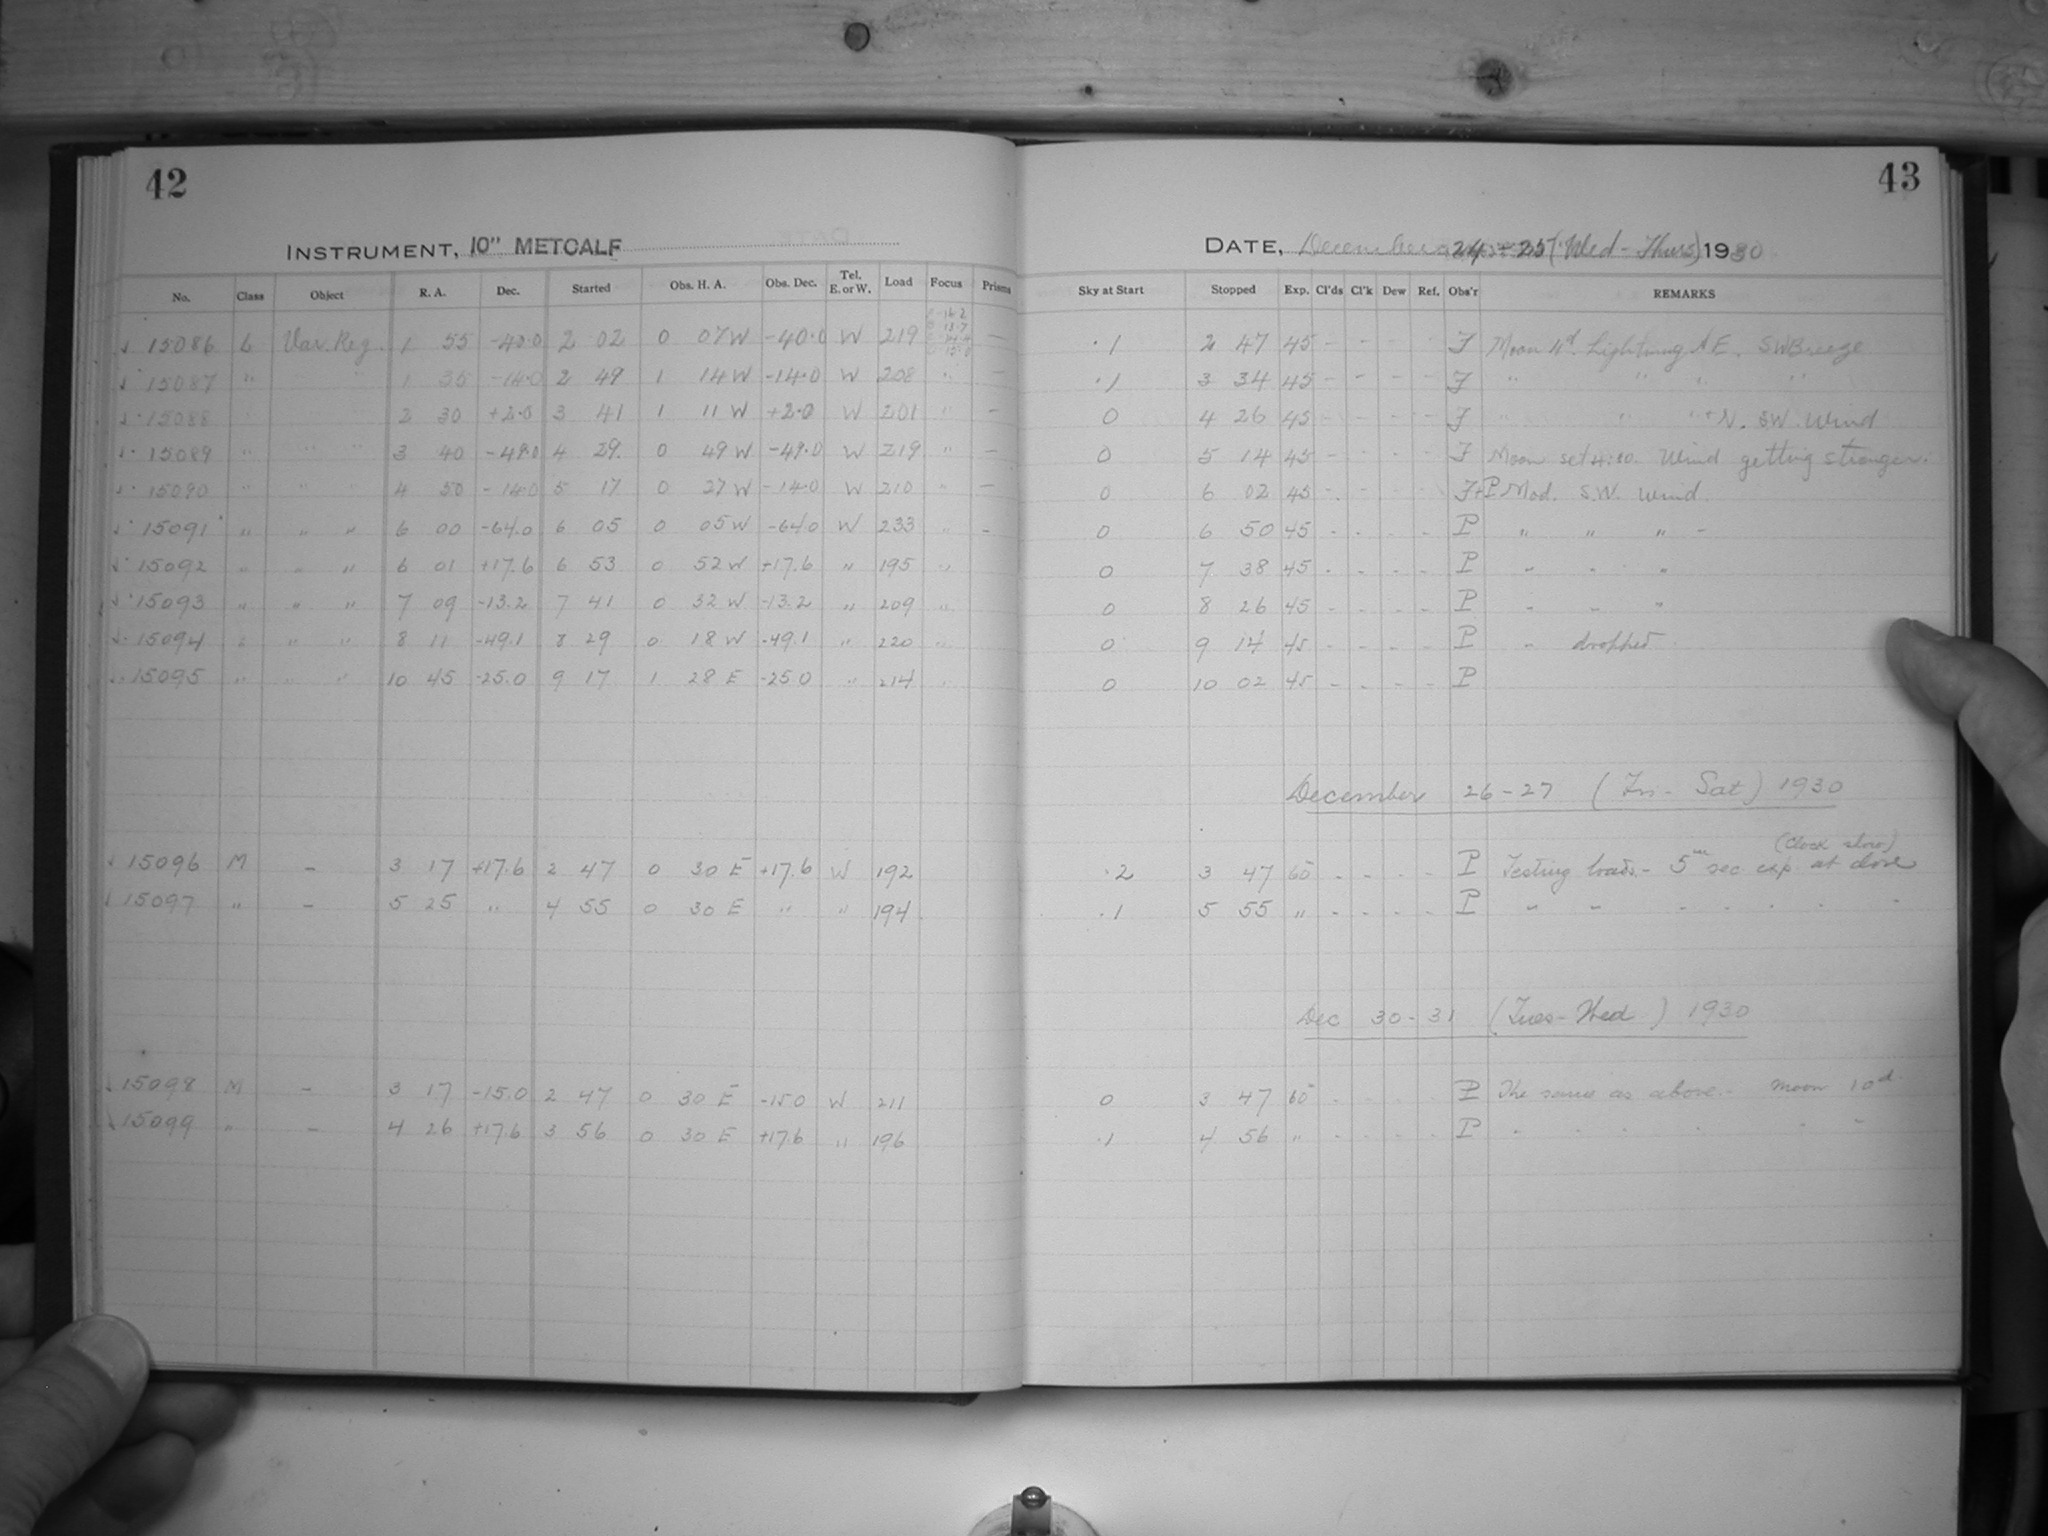 42
INSTRUMENT, 10" METCALF
No. Class Object R. A. Dec. Started Obs. H. A. Obs. Dec. Tel. E. or W. Load Focus Prisms
15086 L Var. Reg. 1 55 -40.0 2 02 0 07 W -40.0 W 219 —
15087 " " 1 35 -14.0 2 49 1 14 W -14.0 W 208 " —
15088 2 30 +2.0 3 41 1 11 W +2.0 W 201 " —
15089 " " " 3 40 -49.0 4 29 0 49 W -49.0 W 219 " —
15090 " " " 4 50 -14.0 5 17 0 27 W -14.0 W 210 " —
15091 " " " 6 00 -64.0 6 05 0 05 W -64.0 W 233 " -
15092 " " " 6 01 +17.6 6 53 0 52 W +17.6 " 195 "
15093 " " " 7 09 -13.2 7 41 0 32 W -13.2 " 209 "
15094 " " " 8 11 -49.1 8 29 0 18 W -49.1 " 220 "
15095 " " " 10 45 -25.0 9 17 1 28 E -25.0 " 214 "
15096 M - 3 17 +17.6 2 47 0 30 E +17.6 W 192
15097 " - 5 25 " 4 55 0 30 E " " 194
15098 M - 3 17 -15.0 2 47 0 30 E -15.0 W 211
15099 " - 4 26 +17.6 3 56 0 30 E +17.6 " 196
43
DATE, December 24-25 (Wed - Thurs) 1930
Sky at Start Stopped Exp. Cl'ds Cl'k Dew Ref. Obs'r REMARKS
.1 2 47 45 - - - - F Moon 4d. Lightning N E. SW Breeze
.1 3 34 45 - - - - F " " " "
0 4 26 45 - - - - F " " " + N. SW. Wind
0 5 14 45 - - - - F Moon set 4:10. Wind getting stronger.
0 6 02 45 - - - - F+P Mod. S.W. wind.
0 6 50 45 - - - - P " " " -
0 7 38 45 - - - - P " " "
0 8 26 45 - - - - P " " "
0 9 14 45 - - - - P " dropped
0 10 02 45 - - - - P
December 26-27 (Fri - Sat) 1930
(Clock slow)
.2 3 47 60 - - - - P Testing loads - 5 sec exp at close
.1 5 55 " - - - - P " " " " " " "
Dec 30-31 (Tues - Wed) 1930
0 3 47 60 - - - - P The same as above - Moon 10d.
.1 4 56 " - - - - P " " " " " "